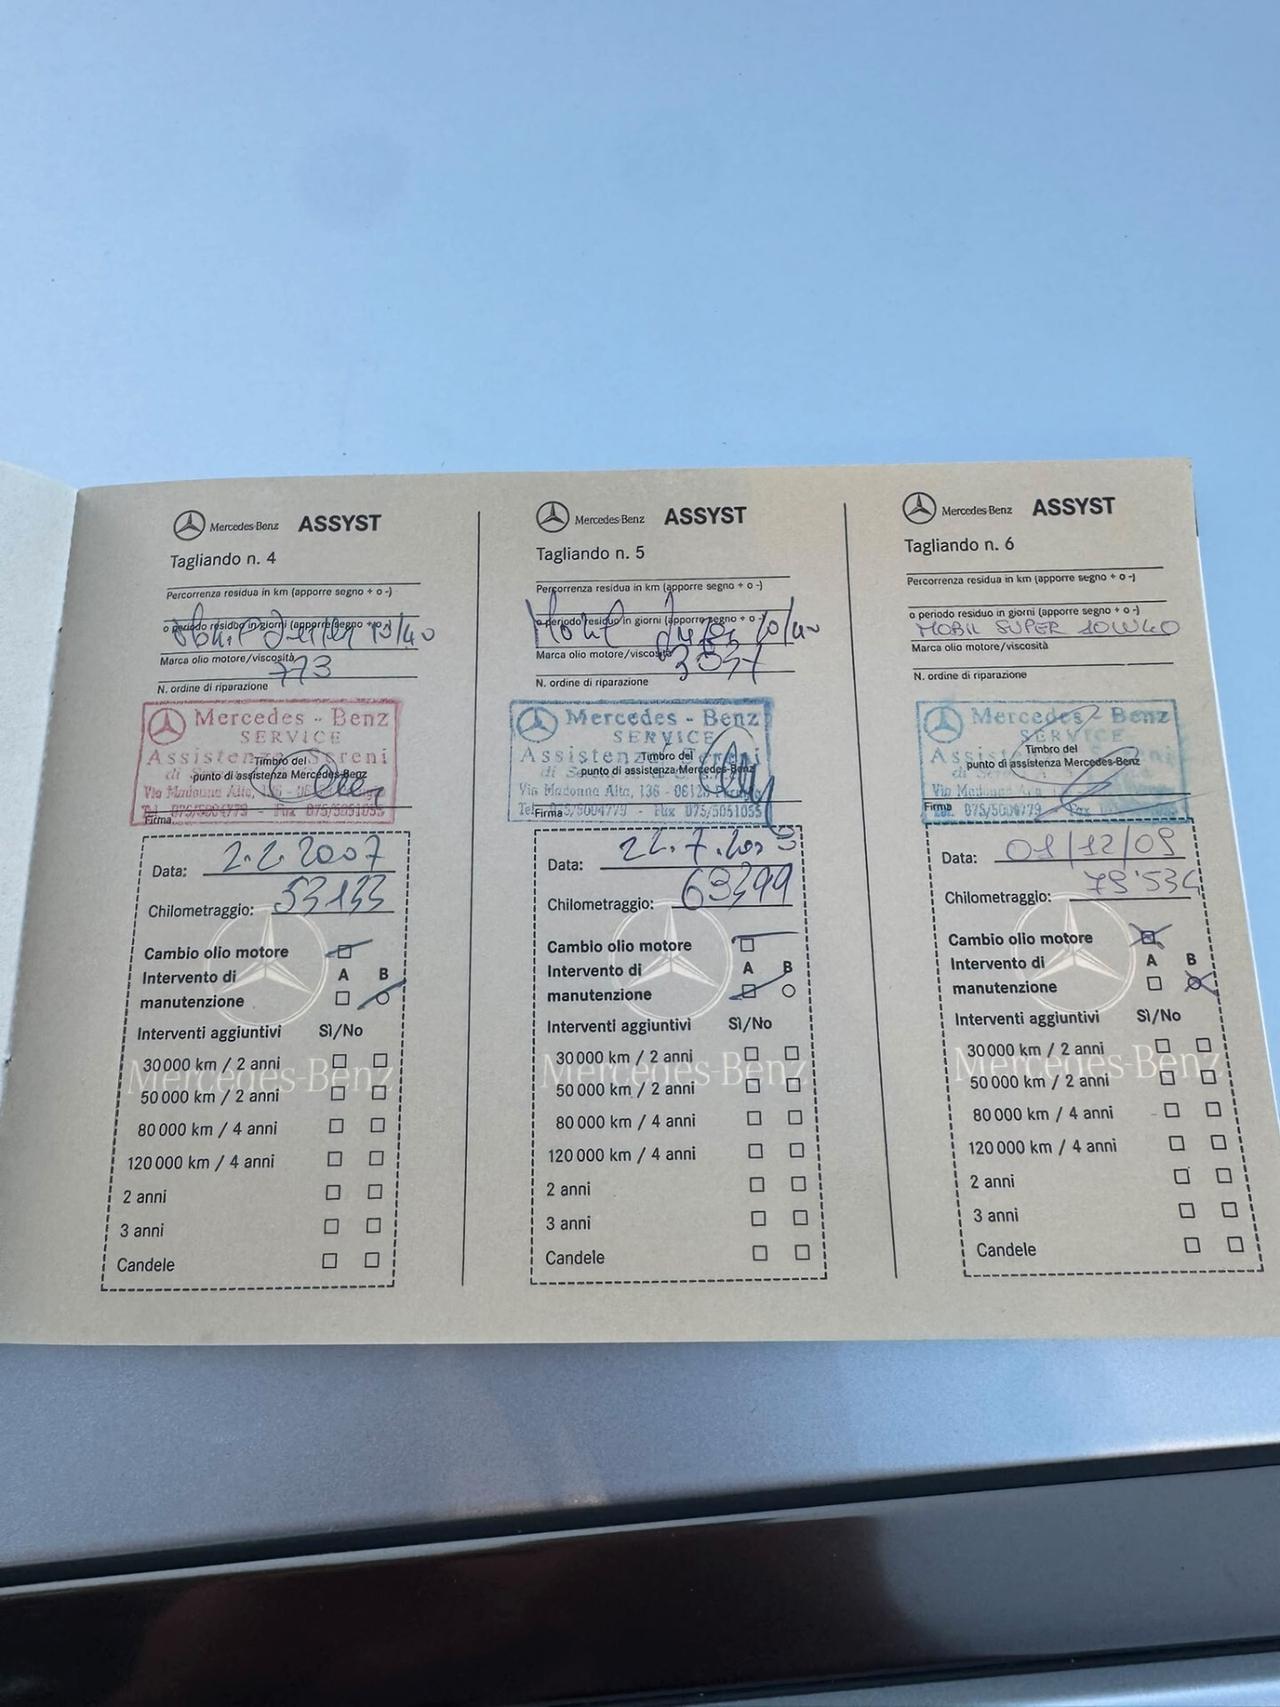 Mercedes-Benz ASSYST
Tagliando n. 4
Percorrenza residua in km (apporre segno + o -)
o periodo residuo in giorni (apporre segno + o -)
10/40
Marca olio motore/viscosità
773
N. ordine di riparazione
Mercedes - Benz
SERVICE
Assistenza Sereni
Timbro del
punto di assistenza Mercedes-Benz
Via Madonna Alta, 136 - 06128 Perugia
Tel. 075/5004779 - Fax 075/5051055
Firma
Data: 2.2.2007
Chilometraggio: 53133
Cambio olio motore
Intervento di A B
manutenzione
Interventi aggiuntivi Sì/No
30 000 km / 2 anni
50 000 km / 2 anni
80 000 km / 4 anni
120 000 km / 4 anni
2 anni
3 anni
Candele
Mercedes-Benz
Mercedes-Benz ASSYST
Tagliando n. 5
Percorrenza residua in km (apporre segno + o -)
o periodo residuo in giorni (apporre segno + o -)
Mobil Super 10/40
Marca olio motore/viscosità
N. ordine di riparazione
Mercedes - Benz
SERVICE
Assistenza Sereni
Timbro del
punto di assistenza Mercedes-Benz
Via Madonna Alta, 136 - 06128 Perugia
Tel. 075/5004779 - Fax 075/5051055
Firma
Data: 22.7.200
Chilometraggio: 63
Cambio olio motore
Intervento di A B
manutenzione
Interventi aggiuntivi Sì/No
30 000 km / 2 anni
50 000 km / 2 anni
80 000 km / 4 anni
120 000 km / 4 anni
2 anni
3 anni
Candele
Mercedes-Benz
Mercedes-Benz ASSYST
Tagliando n. 6
Percorrenza residua in km (apporre segno + o -)
o periodo residuo in giorni (apporre segno + o -)
MOBIL SUPER 10W40
Marca olio motore/viscosità
N. ordine di riparazione
Mercedes - Benz
SERVICE
Timbro del
punto di assistenza Mercedes-Benz
Via Madonna
Firma Tel. 075/5004779 - Fax
Data: 01/12/09
Chilometraggio: 79'534
Cambio olio motore
Intervento di A B
manutenzione
Interventi aggiuntivi Sì/No
30 000 km / 2 anni
50 000 km / 2 anni
80 000 km / 4 anni
120 000 km / 4 anni
2 anni
3 anni
Candele
Mercedes-Benz